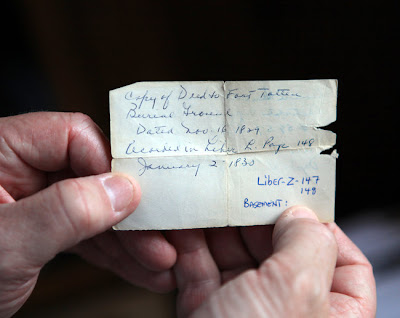 Copy of Deed to Fort Totten
Burial Ground
Dated Nov. 16 1829
Recorded in Liber R. Page 148
January 2 1830
Liber-Z-147
148
Basement: